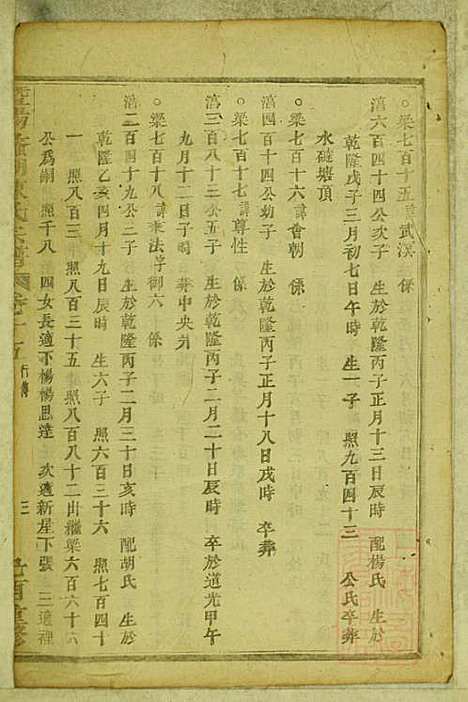 ○梁七百十五諱武漢 係
淯六百四十四公次子 生於乾隆丙子正月十三日辰時 配楊氏 生於
乾隆戊子三月初七日午時 生一子 照九百四十三 公氏卒葬
水碓塘頂
○梁七百十六諱會朝 係
淯四百十四公幼子 生於乾隆丙子正月十八日戌時 卒葬
○梁七百十七諱尊性 係
淯三百八十三公五子 生於乾隆丙子二月二十日辰時 卒於道光甲午
九月十二日子時 葬中央
○梁七百十八諱 法字御六 係
淯二百四十九公二子 生於乾隆丙子二月三十日亥時 配胡氏 生於
乾隆乙亥四月十九日辰時 生六子 照六百三十六 照七百四十
一 照八百三 照八百三十五 照八百八十二出繼梁六百六十六
公爲嗣 照千八 四女長適下楊楊思達 次適新星下張 三適裡
卷十五 行傳 三